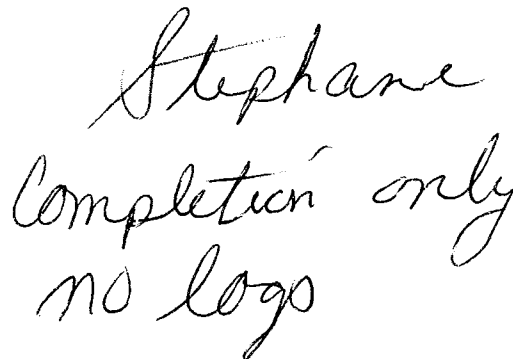 Stephane
Completion only
no logs